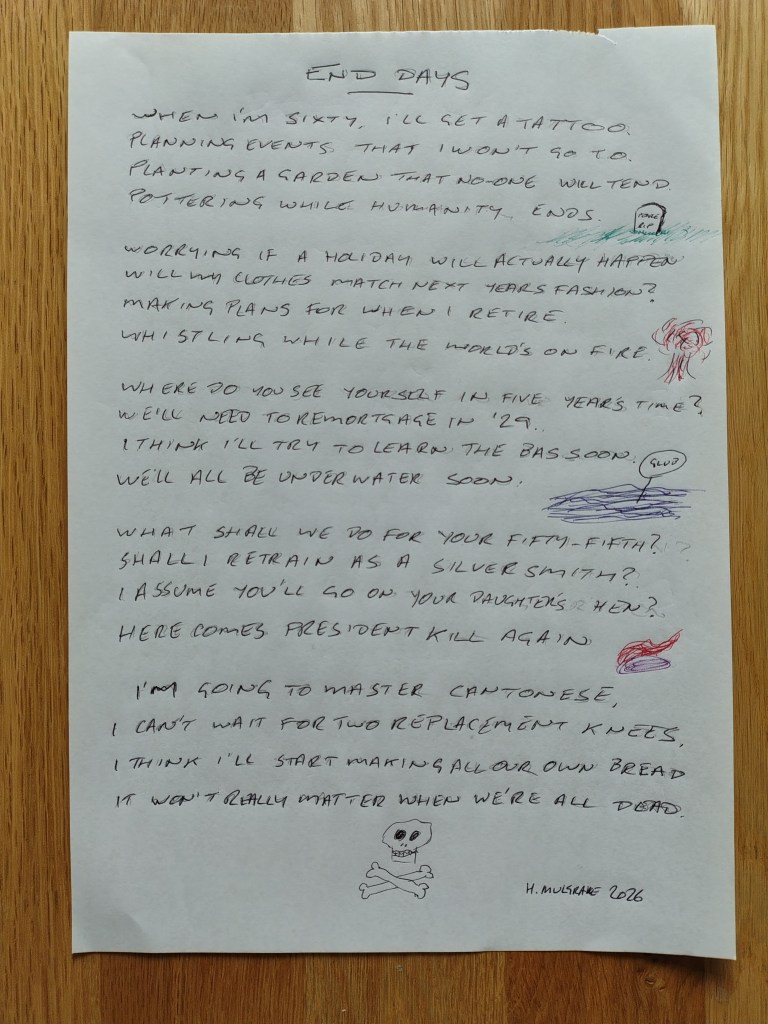 END DAYS
WHEN I'M SIXTY, I'LL GET A TATTOO.
PLANNING EVENTS THAT I WON'T GO TO.
PLANTING A GARDEN THAT NO-ONE WILL TEND.
POTTERING WHILE HUMANITY ENDS.
RIP
WORRYING IF A HOLIDAY WILL ACTUALLY HAPPEN
WILL MY CLOTHES MATCH NEXT YEARS FASHION?
MAKING PLANS FOR WHEN I RETIRE.
WHISTLING WHILE THE WORLD'S ON FIRE.
WHERE DO YOU SEE YOURSELF IN FIVE YEAR'S TIME?
WE'LL NEED TO REMORTGAGE IN '29..
I THINK I'LL TRY TO LEARN THE BASSOON.
GLUB
WE'LL ALL BE UNDERWATER SOON.
WHAT SHALL WE DO FOR YOUR FIFTY-FIFTH?
SHALL I RETRAIN AS A SILVERSMITH?
I ASSUME YOU'LL GO ON YOUR DAUGHTER'S HEN?
HERE COMES PRESIDENT KILL AGAIN
I'M GOING TO MASTER CANTONESE,
I CAN'T WAIT FOR TWO REPLACEMENT KNEES,
I THINK I'LL START MAKING ALL OUR OWN BREAD
IT WON'T REALLY MATTER WHEN WE'RE ALL DEAD.
H. MULGRAVE 2026